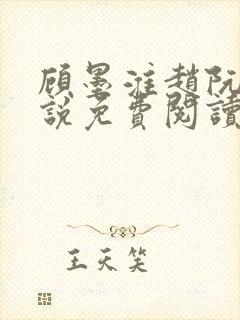 顾墨淮趙阮
說免費閱讀
王天笑